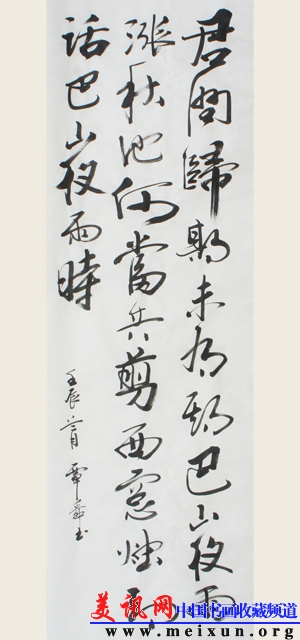 君問歸期未有期巴山夜雨
漲秋池何當共剪西窗燭却
話巴山夜雨時
壬辰 月 覃 书
美讯网 中国书画收藏频道
http://www.meixun.org